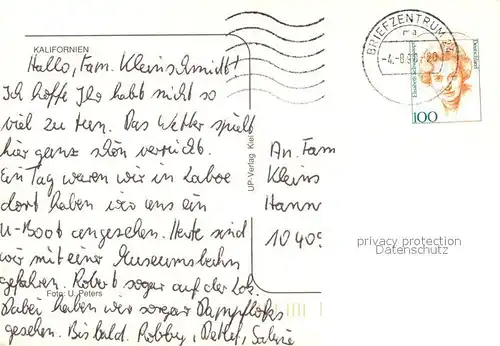 KALIFORNIEN
Hallo, Fam. Kleinschmidt!
Ich hoffe Ihr habt nicht so
viel zu tun. Das Wetter spielt
hier ganz schön verrückt.
Ein Tag waren wir in Laboe
dort haben wir uns ein
U-Boot angesehen. Heute sind
wir mit einer Museumsbahn
gefahren. Robert sogar auf der Lok.
Foto: U. Peters
Dabei haben wir sogar Dampfloks
gesehen. Bis bald. Robby, Detlef, Sabine
UP-Verlag Kiel
BRIEFZENTRUM 24
ma
-4.-8.98-20
Deutschland
100
An Fam
Kleins
Hann
10409
privacy protection
Datenschutz